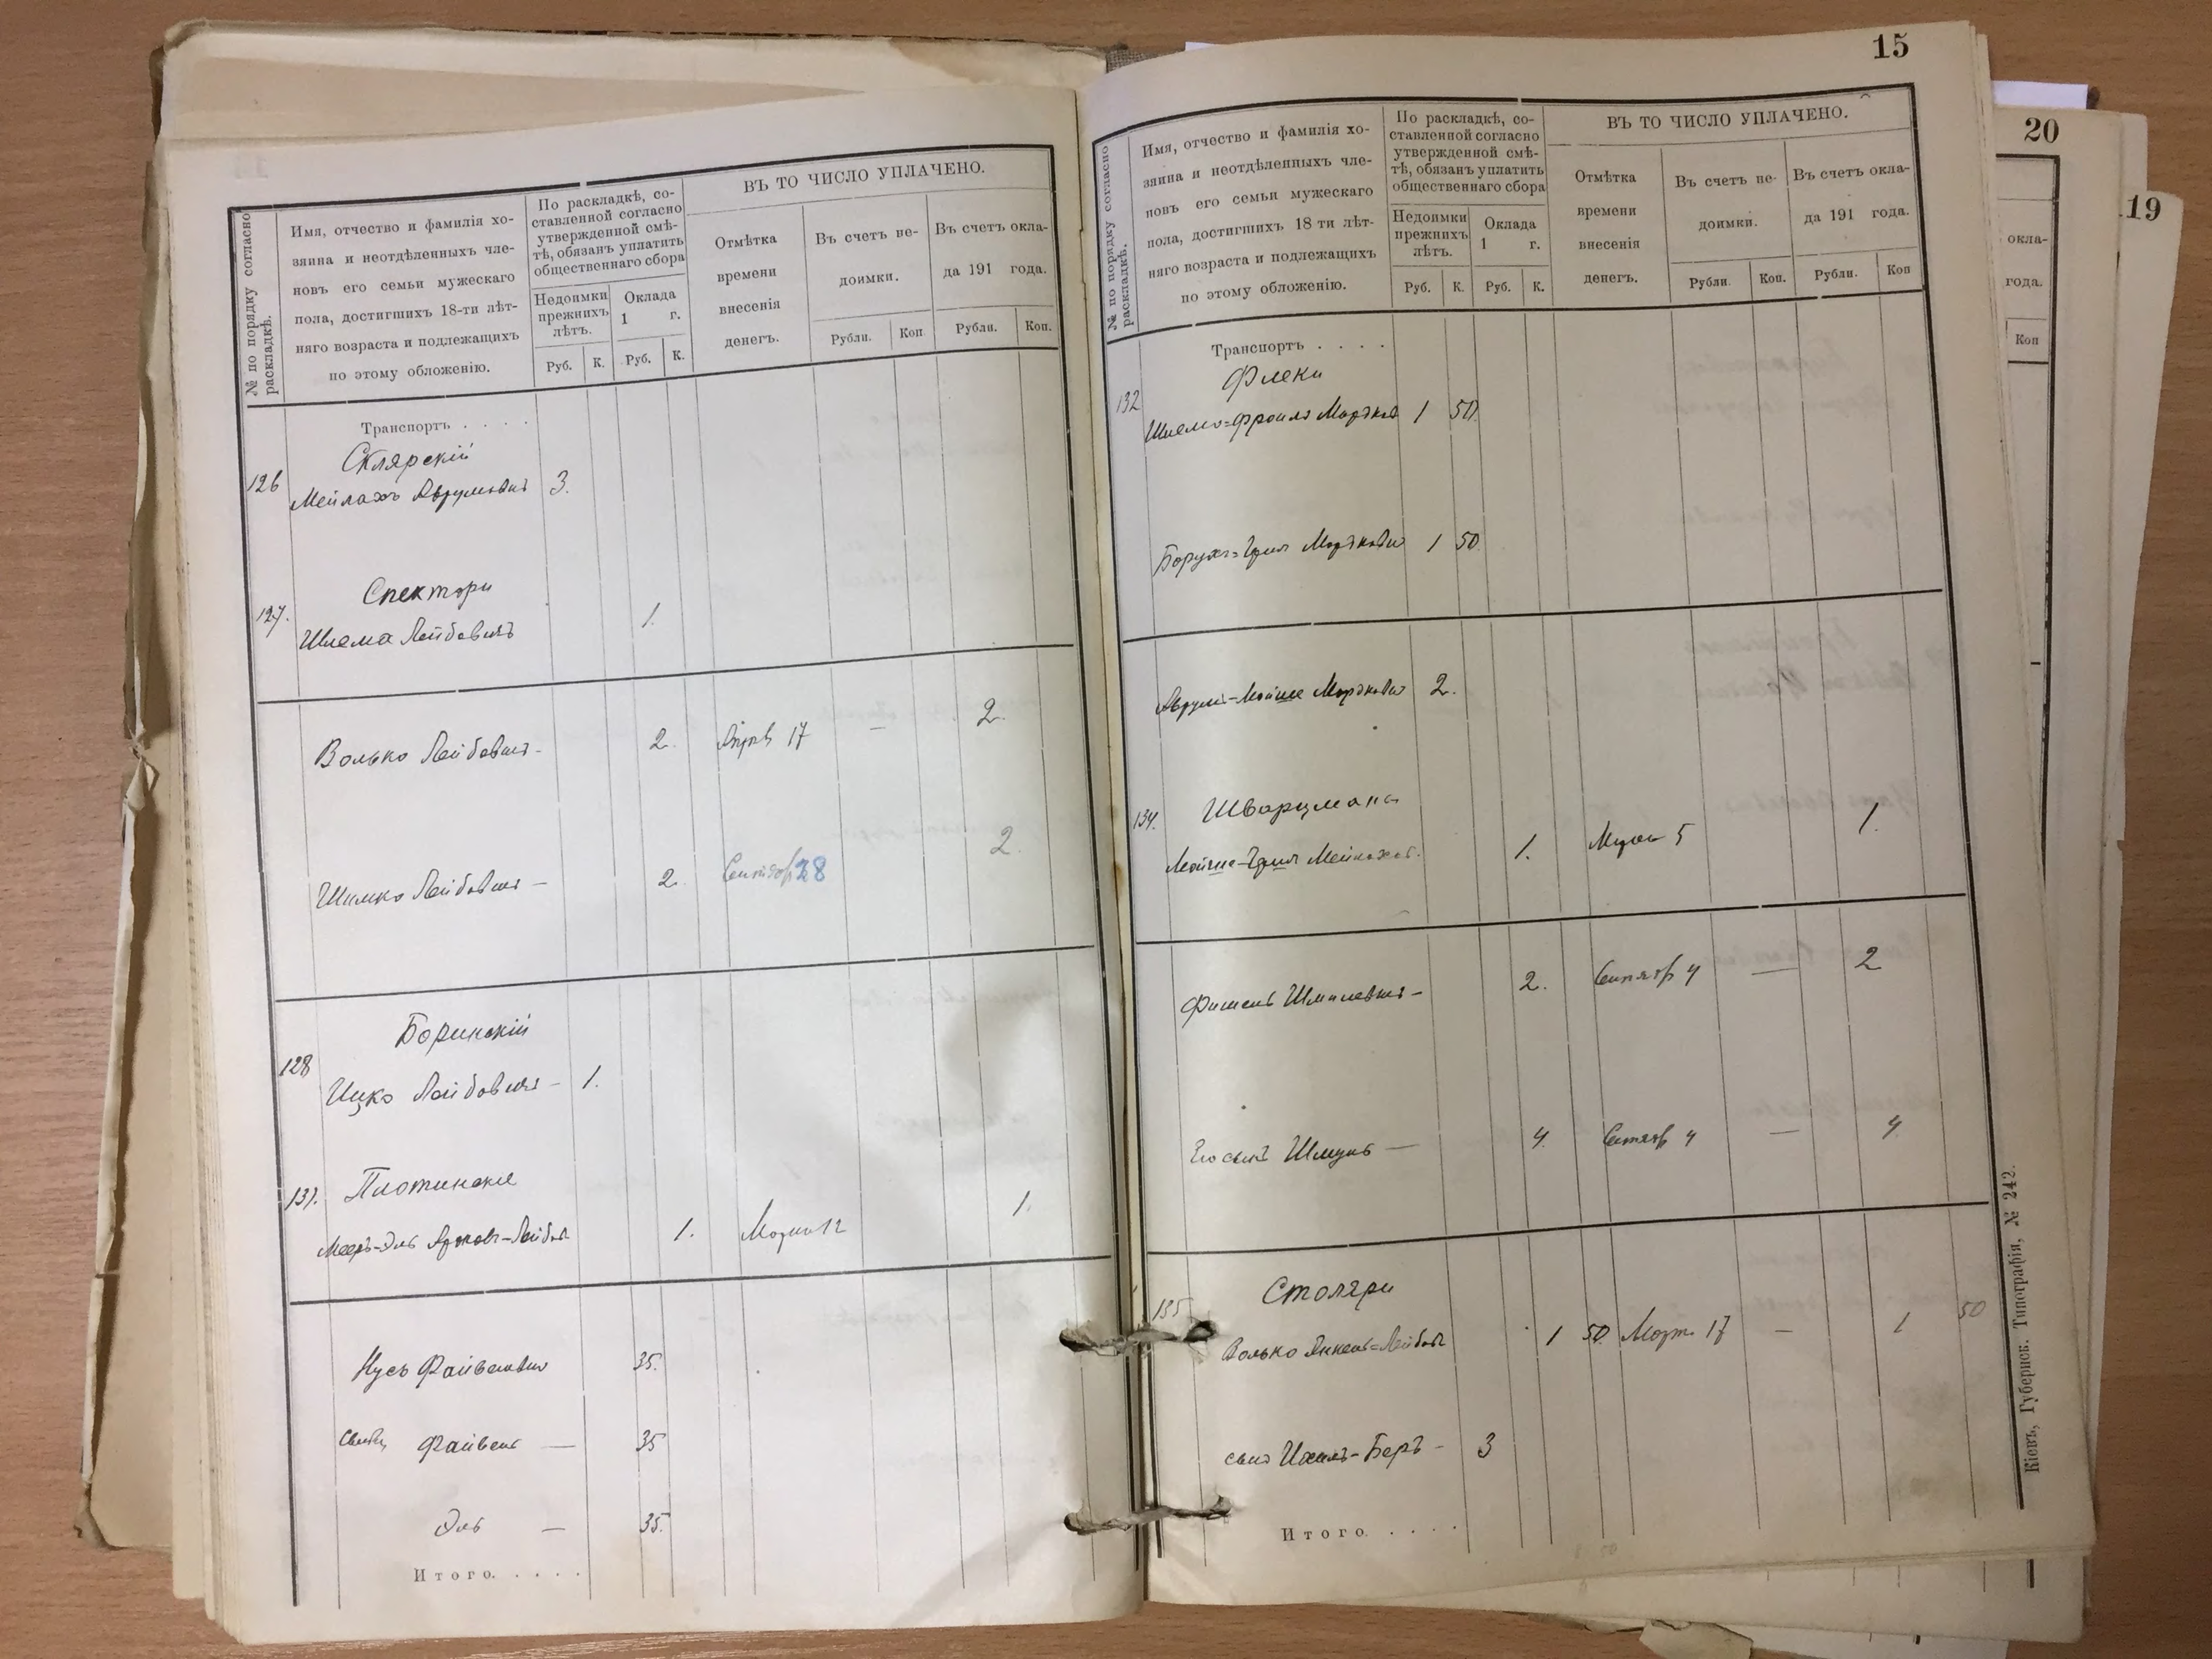 № по порядку согласно раскладкѣ.
Имя, отчество и фамилія хо-
зяина и неотдѣленныхъ чле-
новъ его семьи мужескаго
пола, достигшихъ 18-ти лѣт-
няго возраста и подлежащихъ
по этому обложенію.
По раскладкѣ, со-
ставленной согласно
утвержденной смѣ-
тѣ, обязанъ уплатить
общественнаго сбора
Недоимки прежнихъ лѣтъ.
Оклада 1 г.
Руб. К. Руб. К.
ВЪ ТО ЧИСЛО УПЛАЧЕНО.
Отмѣтка времени внесенія денегъ.
Въ счетъ не-
доимки.
Въ счетъ окла-
да 191 года.
Рубли. Коп Рубли. Коп.
Транспортъ . . . .
Склярскій
126 Мейлахъ Аврумовичъ 3.
Спекторъ
127. Шлема Лейбовичъ 1.
Волько Лейбовичъ 2. Апрѣ 17 — 2.
Шимко Лейбовичъ — 2. Сентябр 28 2.
Боринскій
128 Ицко Лейбовичъ — 1.
131. Плотинские
Мееръ-Эль 1. Марта 12 1.
Нусь Файвелевич 35.
Файвель — 35
Эль — 35.
Итого. . . . .
15
№ по порядку согласно раскладкѣ.
Имя, отчество и фамилія хо-
зяина и неотдѣленныхъ чле-
новъ его семьи мужескаго
пола, достигшихъ 18 ти лѣт-
няго возраста и подлежащихъ
по этому обложенію.
По раскладкѣ, со-
ставленной согласно
утвержденной смѣ-
тѣ, обязанъ уплатить
общественнаго сбора
Недоимки прежнихъ лѣтъ.
Оклада 1 г.
Руб. К. Руб. К.
ВЪ ТО ЧИСЛО УПЛАЧЕНО.
Отмѣтка времени внесенія денегъ.
Въ счетъ не-
доимки.
Въ счетъ окла-
да 191 года.
Рубли. Коп. Рубли. Коп
Транспортъ . . . .
132 Флекъ
Шлемо=Фроилъ Мордков 1 50
Борухъ= Мордкович 1 50.
Аврумъ-Мойше Мордкович 2.
134. Шварцманъ
Мойше- Мейлахов. 1. 5 1.
Фишель Шмилевичъ — 2. Сентябр 4 — 2
Его сынъ Шмуль — 4. Сентяб 4 — 4
135 Столяръ
Волько Янкель=Лейбов 1 50 Март. 17 — 1 50
сынъ Ихилъ-Беръ — 3
Итого. . . . .
Кіевъ, Губернск. Типографія, № 242.
20
окла-
года.
Коп
19